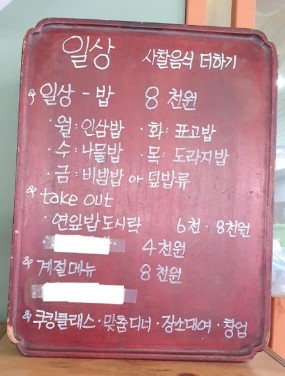 일상 사찰음식 더하기
일상 - 밥 8천원
· 월: 인삼밥 · 화: 표고밥
· 수: 나물밥 · 목: 도라지밥
· 금: 비빔밥 or 덮밥류
take out
· 연잎밥도시락 6천 · 8천원
4천원
계절메뉴 8천원
쿠킹클래스 · 맞춤디너 · 장소대여 · 창업